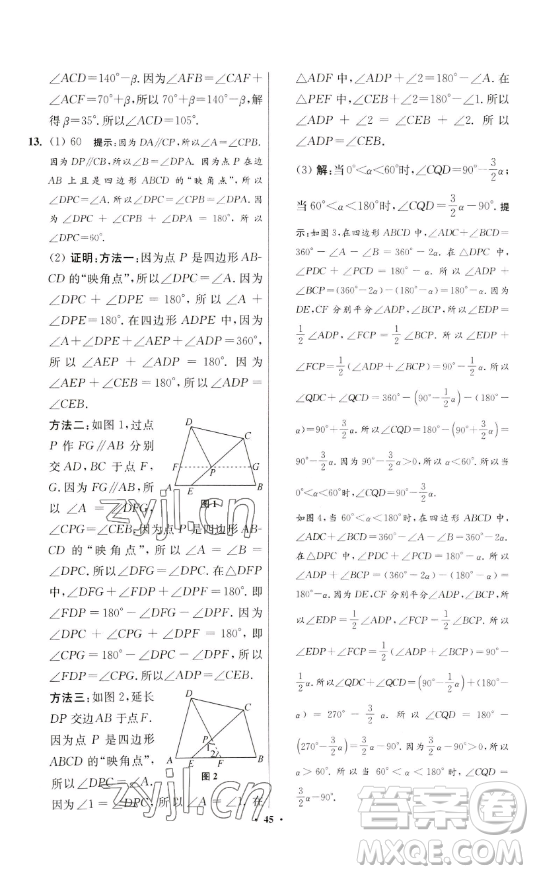 ∠ACD=140°-β. 因为∠AFB=∠CAF+
∠ACF=70°+β,所以 70°+β=140°-β,解
得β=35°. 所以∠ACD=105°.
13. (1) 60 提示:因为DA∥CP,所以∠A=∠CPB.
因为DP∥CB,所以∠B=∠DPA. 因为点P在边
AB上且是四边形ABCD的“映角点”,所以
∠DPC=∠A. 所以∠DPC=∠CPB=∠DPA. 因
为∠DPC+∠CPB+∠DPA=180°. 所以
∠DPC=60°.
(2) 证明:方法一:因为点 P 是四边形 AB-
CD 的“映角点”,所以∠DPC=∠A. 因为
∠DPC+∠DPE=180°,所以∠A+
∠DPE=180°. 在四边形 ADPE 中,因为
∠A+∠DPE+∠AEP+∠ADP=360°,
所以∠AEP+∠ADP=180°. 因为
∠AEP+∠CEB=180°,所以∠ADP=
∠CEB.
方法二:如图 1,过点
P 作 FG∥AB 分别
交 AD,BC 于点 F,
G. 因为 FG∥AB,所
以∠A=∠DFG,
∠CPG=∠CEB. 因为点 P 是四边形 AB-
CD 的“映角点”,所以∠A=∠DPC. 所
以∠DFG=∠DPC. 在△DFP
中,∠FDP+∠DFG+∠DPF=180°. 即
∠FDP=180°-∠DFG-∠DPF. 因为
∠CPG=180°-∠DPC-∠DPF. 即
∠CPG=180°-∠DFG-∠DPF. 所以
∠FDP=∠CPG. 所以∠ADP=∠CEB.
方法三:如图 2,延长
DP 交边 AB 于点 F.
因为点 P 是四边形
ABCD 的“映角点”,
所以∠DPC=∠A.
因为∠1=∠DPC,所以∠A=∠1. 在
D
C
F
P
G
A
E
B
图 1
D
C
P
1
2
A
E
F
B
图 2
△ADF 中,∠ADP+∠2=180°-∠A. 在
△PEF 中,∠CEB+∠2=180°-∠1. 所
以∠ADP+∠2=∠CEB+∠2. 所以
∠ADP=∠CEB.
(3) 解:当 0°<α<60°时,∠CQD=90°-3/2α;
当 60°<α<180°时,∠CQD=3/2α-90°. 提
示:如图 3,在四边形 ABCD 中,∠ADC+∠BCD=
360°-∠A-∠B=360°-2α. 在△DPC中,
∠PDC+∠PCD=180°-α. 所以∠ADP+
∠BCP=(360°-2α)-(180°-α)=180°-α. 因为
DE,CF分别平分∠ADP,∠BCP,所以∠EDP=
1/2∠ADP,∠FCP=1/2∠BCP. 所以∠EDP+
∠FCP=1/2(∠ADP+∠BCP)=90°-1/2α. 所以
∠QDC+∠QCD=360°-(90°-1/2α)-(180°-
α)=90°+3/2α. 所以∠CQD=180°-(90°+3/2α)=
90°-3/2α. 因为90°-3/2α>0,所以α<60°. 所以当
0°<α<60°时,∠CQD=90°-3/2α.
如图4,当60°<α<180°时,在四边形ABCD中,
∠ADC+∠BCD=360°-∠A-∠B=360°-2α.
在△DPC中,∠PDC+∠PCD=180°-α. 所以
∠ADP+∠BCP=(360°-2α)-(180°-α)=
180°-α. 因为DE,CF分别平分∠ADP,∠BCP,所
以∠EDP=1/2∠ADP,∠FCP=1/2∠BCP. 所以
∠EDP+∠FCP=1/2(∠ADP+∠BCP)=90°-
1/2α. 所以∠QDC+∠QCD=(90°-1/2α)+(180°-
α)=270°-3/2α. 所以∠CQD=180°-
(270°-3/2α)=3/2α-90°. 因为3/2α-90°>0,所以
α>60°. 所以当60°<α<180°时,∠CQD=
3/2α-90°.
· 45 ·
zyjl.cn
zyjl.cn
答案圈